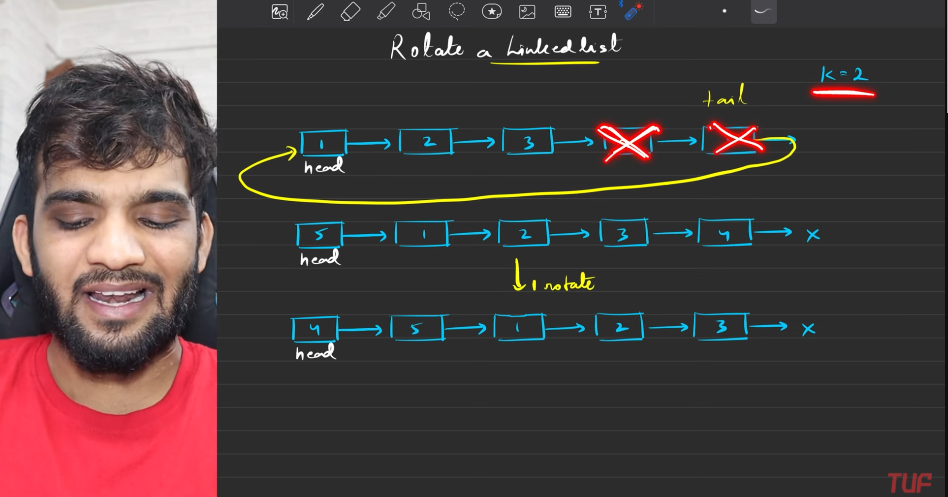 Rotate a Linked list
K = 2
tail
1 2 3
head
5 1 2 3 4 x
head
1 rotate
4 5 1 2 3 x
head
TUF